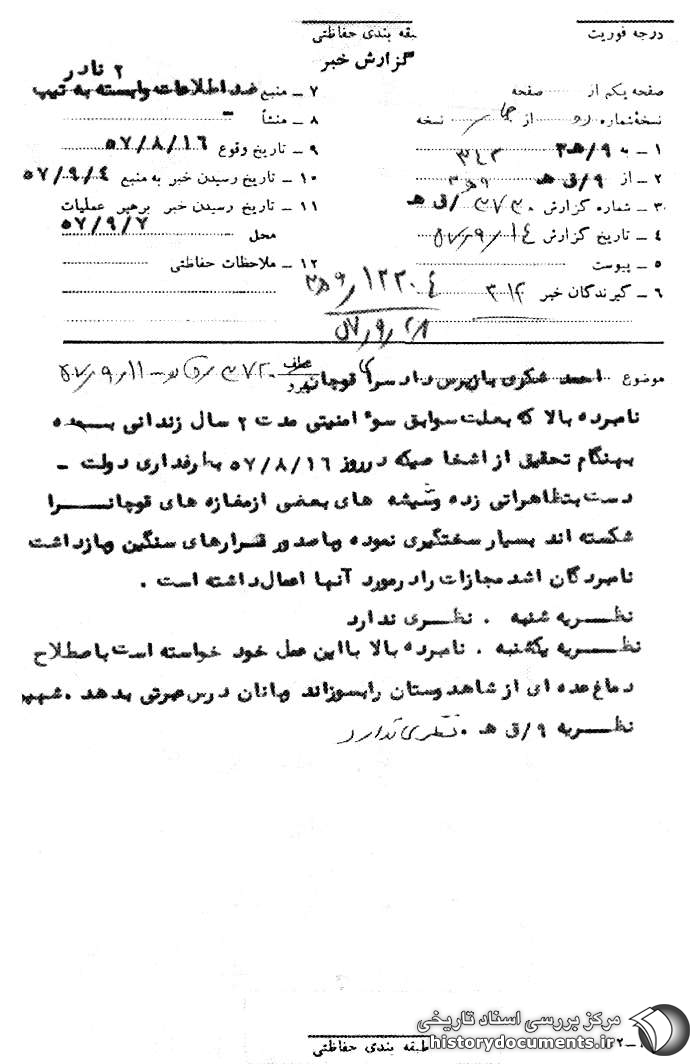 درجه فوریت
طبقه بندی حفاظتی
گزارش خبر
صفحه یکم از صفحه
نسخهٔ شماره از نسخه
۱ – به ۹/هـ۳ ۳۴۳
۲ – از ۹/ق هـ
۳ – شماره گزارش ۳۷۲۰ /ق هـ
۴ – تاریخ گزارش ۵۷/۹/۱۴
۵ – پیوست
۶ – گیرندگان خبر ۳۰۱۲
۲ نادر
۷ – منبع ضد اطلاعات وابسته به تیپ
۸ – منشأ –
۹ – تاریخ وقوع ۵۷/۸/۱۶
۱۰ – تاریخ رسیدن خبر به منبع ۵۷/۹/۴
۱۱ – تاریخ رسیدن خبر برهبر عملیات
محل ۵۷/۹/۷
۱۲ – ملاحظات حفاظتی
۱۲۲۰۴
۵۷/۹/۲۸
موضوع احمد شکری بازپرس دادسرای قوچان
عطف ۳۷۲۰
نامبرده بالا که بعلت سوابق سوء امنیتی مدت ۲ سال زندانی بوده
بهنگام تحقیق از اشخاصیکه در روز ۵۷/۸/۱۶ بطرفداری دولت –
دست بتظاهراتی زده وشیشه های بعضی ازمغازه های قوچان را
شکسته اند بسیار سختگیری نموده وباصدور قرارهای سنگین وبازداشت
نامبردگان اشد مجازات رادرمورد آنها اعمال داشته است .
نظریه شنبه . نظری ندارد
نظریه یکشنبه . نامبرده بالا بااین عمل خود خواسته است باصطلاح
دماغ عده ای از شاهدوستان رابسوزاند وبانان درس عبرتی بدهد .
نظریه ۹/ق هـ . نظری ندارد
طبقه بندی حفاظتی
مرکز بررسی اسناد تاریخی
historydocuments.ir